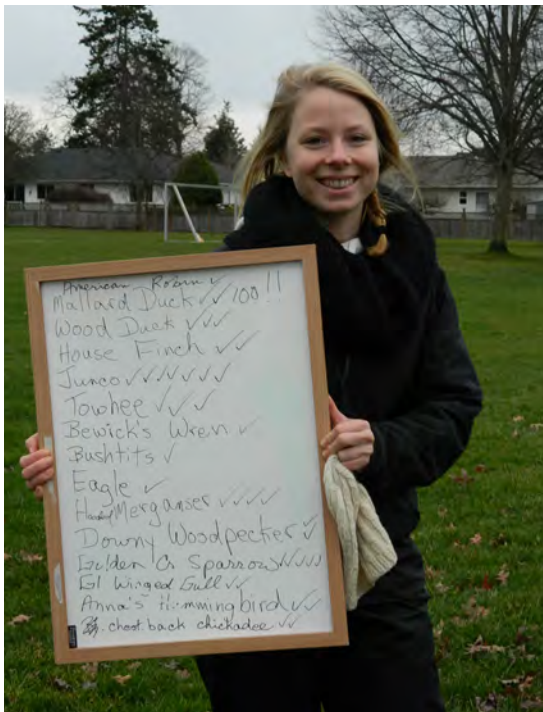 American Robin ✓
Mallard Duck ✓✓ 100!!
Wood Duck ✓✓✓
House Finch ✓✓
Junco ✓✓✓✓✓✓
Towhee ✓✓✓
Bewick's Wren ✓
Bushtits ✓
Eagle ✓
Merganser ✓✓✓✓
Downy Woodpecker ✓
Golden Cr Sparrow ✓✓✓✓
Gl Winged Gull ✓✓
Anna's Hummingbird ✓✓
chest. back chickadee ✓✓